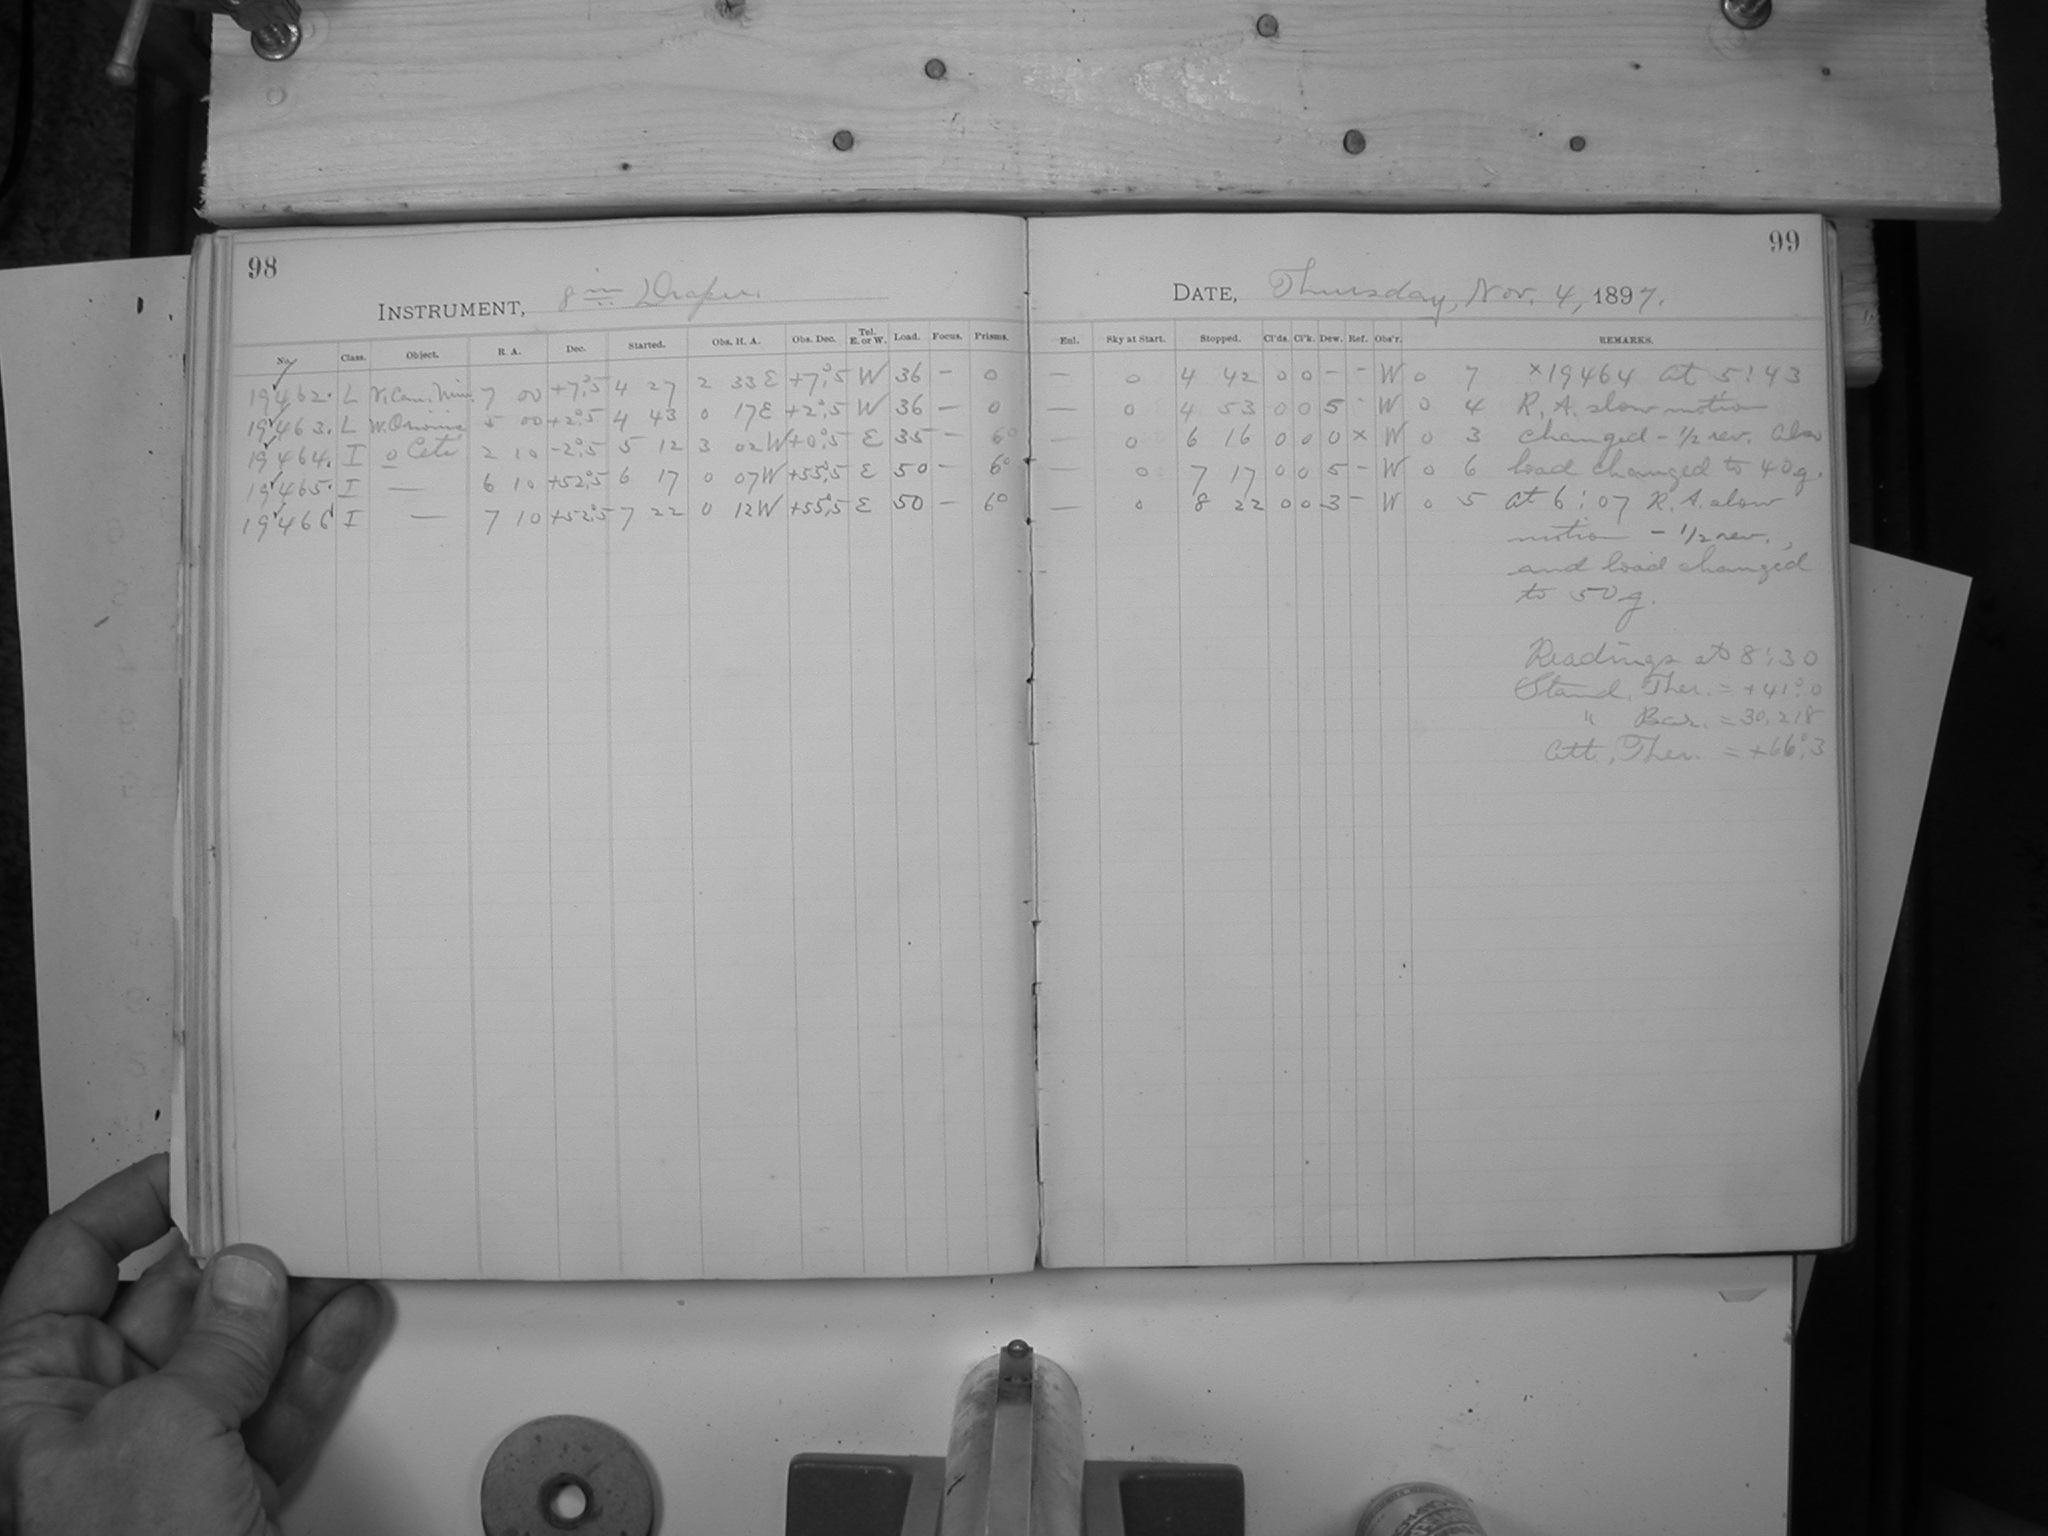 98
INSTRUMENT, 8 in Draper.
No. Class. Object. R. A. Dec. Started. Obs. H. A. Obs. Dec. Tel. E. or W. Load. Focus. Prisms.
19462. L V. Can. Min. 7 00 +7°.5 4 27 2 33 E +7°.5 W 36 – 0
19463. L W. Orionis 5 00 +2°.5 4 43 0 17 E +2°.5 W 36 – 0
19464. I o Ceti 2 10 -2°.5 5 12 3 02 W +0°.5 E 35 – 6°
19465. I — 6 10 +52°.5 6 17 0 07 W +55°.5 E 50 – 6°
19466 I — 7 10 +52°.5 7 22 0 12 W +55°.5 E 50 – 6°
99
DATE, Thursday, Nov. 4, 1897.
Enl. Sky at Start. Stopped. Cl'ds. Cl'k. Dew. Ref. Obs'r. REMARKS.
— 0 4 42 0 0 – – W 0 7 ×19464 at 5:43
— 0 4 53 0 0 5 – W 0 4 R. A. slow motion
— 0 6 16 0 0 0 × W 0 3 changed – 1/2 rev. Also
— 0 7 17 0 0 5 – W 0 6 load changed to 40 g.
— 0 8 22 0 0 3 – W 0 5 At 6:07 R. A. slow
motion – 1/2 rev.,
and load changed
to 50 g.
Readings at 8:30
Stand. Ther. = +41°.0
" Bar. = 30.218
Att. Ther. = +66°.3